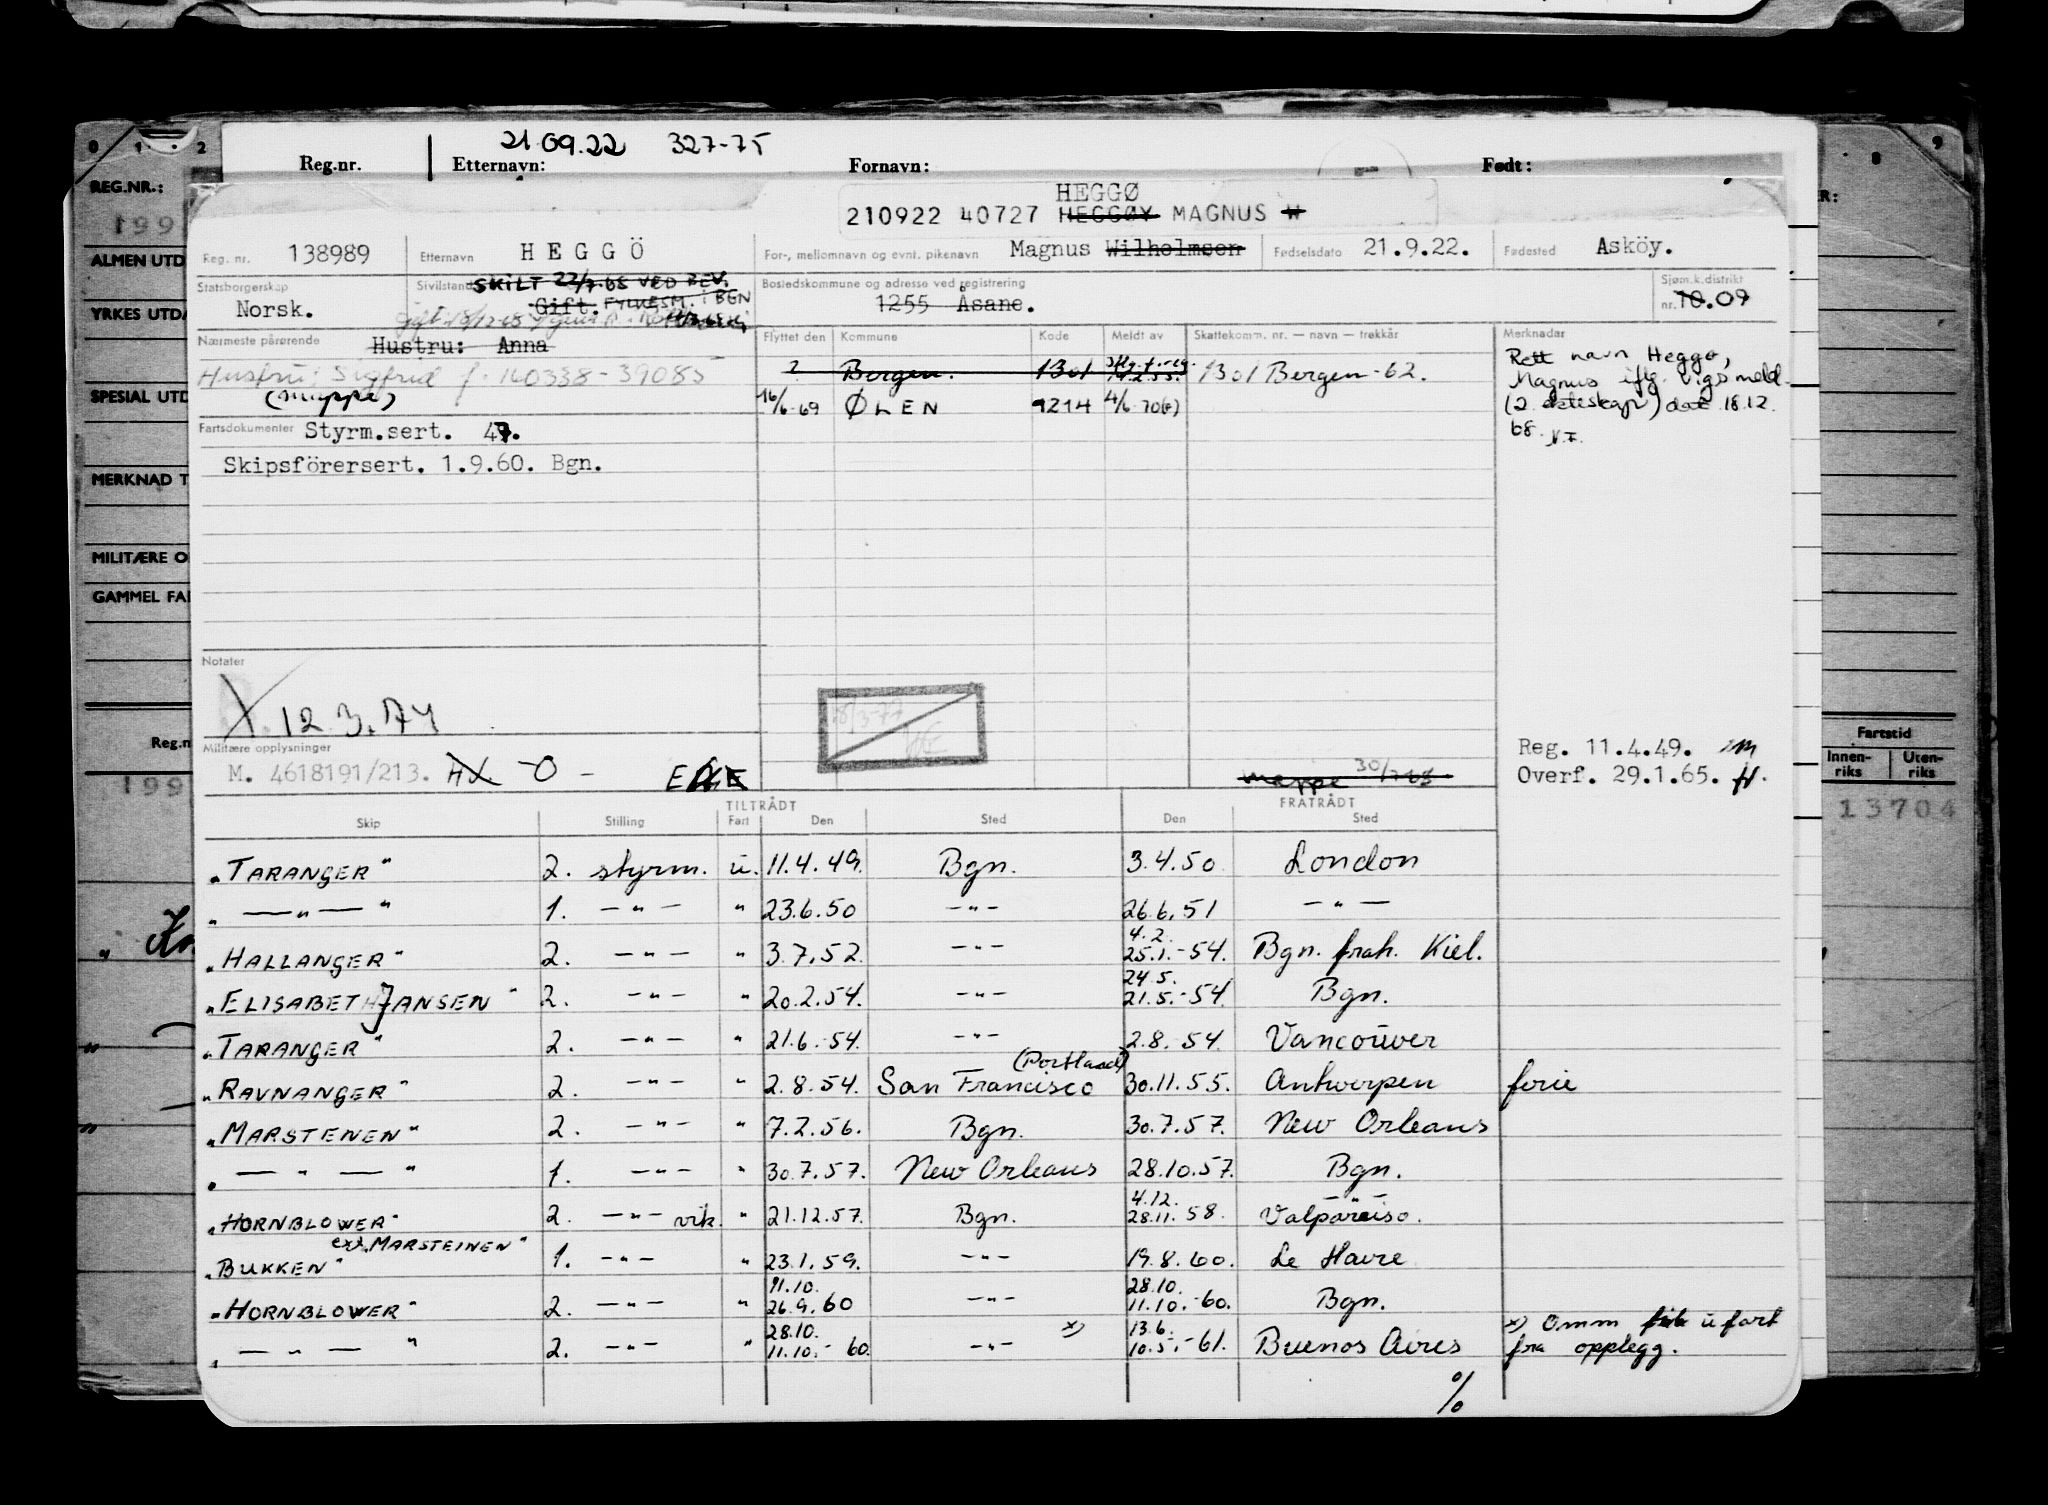 0 1 2
9
8
REG.NR.:
199
ALMEN UTD
YRKES UTD
SPESIAL UTD
MERKNAD T
MILITÆRE O
GAMMEL FA
Reg.n
199
R:
Fartstid
Innen-riks Uten-riks
13704
21.09.22 327-75
Reg.nr. Etternavn: Fornavn: Født:
HEGGØ
210922 40727 HEGGØY MAGNUS W
Reg. nr. 138989 Etternavn HEGGÖ For-, mellomnavn og evnt. pikenavn Magnus Wilhelmsen Fødselsdato 21.9.22. Fødested Asköy.
Statsborgerskap Norsk. Sivilstand SKILT 22/7-65 VED BEV. Gift. FYLKESM. i BGN
Bostedskommune og adresse ved registrering 1255 Åsane. Sjøm.k.distrikt nr. 10. 09
Nærmeste pårørende Hustru: Anna
Hustru: Sigfrid f. 140338-39085
(mappe)
Flyttet den Kommune Kode Meldt av Skattekomm. nr. — navn — trekkår Merknader
? Bergen. 1301 1301 Bergen-62.
16/6-69 ØLEN 1214 4/6-70
Rett navn Heggø,
Magnus iflg. vigsmeld.
(2. ekteskap) dat 18.12.
68.
Fartsdokumenter Styrm.sert. 47.
Skipsförersert. 1.9.60. Bgn.
Notater
X. 12.3.74
Militære opplysninger
M. 4618191/213. O -
mappe 30/7-68
Reg. 11.4.49.
Overf. 29.1.65.
TILTRÅDT FRATRÅDT
Skip Stilling Fart Den Sted Den Sted
"TARANGER" 2. styrm. u. 11.4.49. Bgn. 3.4.50. London
" — " — " 1. — " — " 23.6.50 — " — 26.6.51 — " —
"HALLANGER" 2. — " — " 3.7.52. — " — 4.2. 25.1.-54. Bgn. frah. Kiel.
"ELISABETH JANSEN" 2. — " — " 20.2.54. — " — 24.5. 21.5.-54. Bgn.
"TARANGER" 2. — " — " 21.6.-54. — " — 2.8.-54. Vancouver
"RAVNANGER" 2. — " — " 2.8.54. San Francisco (Portland) 30.11.55. Antwerpen ferie
"MARSTENEN" 2. — " — " 7.2.56. Bgn. 30.7.57. New Orleans
" — " — " 1. — " — " 30.7.57. New Orleans 28.10.57. Bgn.
"HORNBLOWER" 2. — " — vik. " 21.12.57. Bgn. 4.12. 28.11.58. Valparaiso.
"BUKKEN" ex. "MARSTEINEN" 1. — " — " 23.1.59. — " — 19.8.60. Le Havre
"HORNBLOWER" 2. — " — " 11.10. 26.9.60 — " — 28.10. 11.10.-60. Bgn.
" — " — " 2. — " — " 28.10. 11.10.-60. — " — x) 13.6. 10.5.-61. Buenos Aires x) Omm u fart
fra opplegg.
%